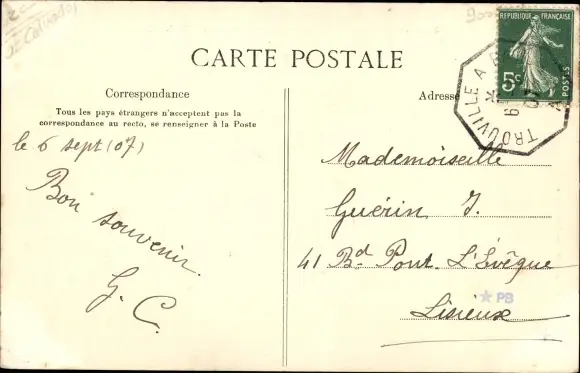 CARTE POSTALE
Correspondance
Tous les pays étrangers n'acceptent pas la
correspondance au recto, se renseigner à la Poste
le 6 sept (07)
Bon souvenir.
G. C.
Adresse
REPUBLIQUE FRANÇAISE
5c
POSTES
TROUVILLE A
Mademoiselle
Guérin J.
41 Bd Pont. L'Évêque
Lisieux
PB